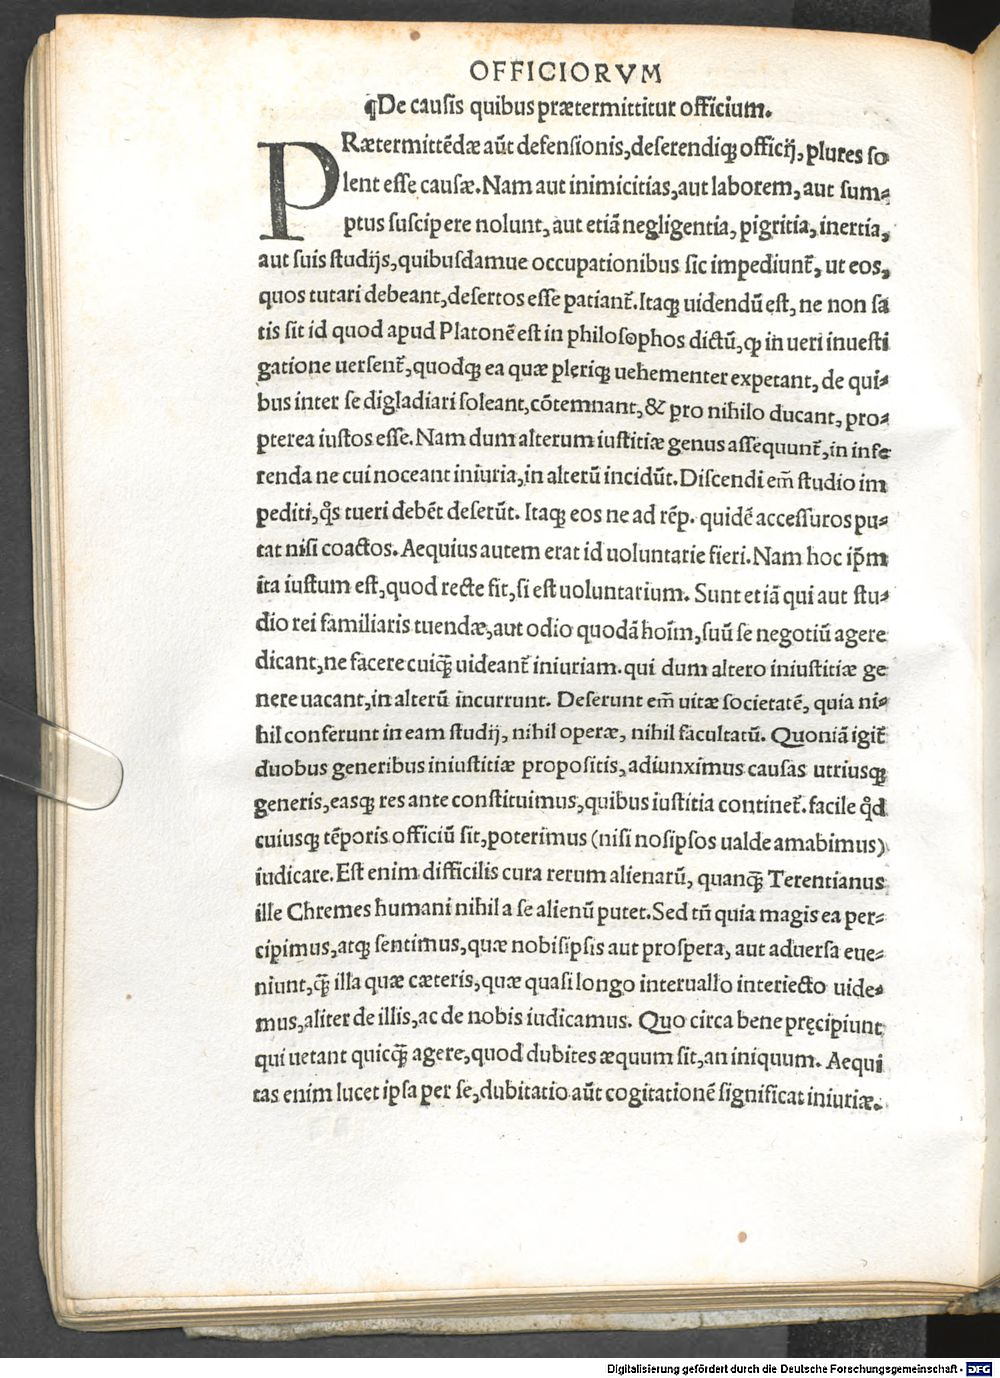 OFFICIORVM
¶De causis quibus prætermittitur officium.
PRætermittēdæ aūt defensionis, deserendiq́ꝫ officij, plures so
lent esse causæ. Nam aut inimicitias, aut laborem, aut sum-
ptus suscipere nolunt, aut etiā negligentia, pigritia, inertia,
aut suis studijs, quibusdamue occupationibus sic impediunt̄, ut eos,
quos tutari debeant, desertos esse patiant̄. Itaqꝫ uidendū est, ne non sa
tis sit id quod apud Platonē est in philosophos dictū, ꝙ in ueri inuesti
gatione uersent̄, quodqꝫ ea quæ plęriqꝫ uehementer expetant, de qui-
bus inter se digladiari soleant, cōtemnant, & pro nihilo ducant, pro-
pterea iustos esse. Nam dum alterum iustitiæ genus assequunt̄, in infe
renda ne cui noceant iniuria, in alterū incidūt. Discendi em̄ studio im
pediti, q̄s tueri debēt deserūt. Itaqꝫ eos ne ad rēp. quidē accessuros pu-
tat nisi coactos. Aequius autem erat id uoluntarie fieri. Nam hoc ip̄m
ita iustum est, quod recte fit, si est uoluntarium. Sunt etiā qui aut stu-
dio rei familiaris tuendæ, aut odio quodā hoīm, suū se negotiū agere
dicant, ne facere cuiqꝫ̄ uideant̄ iniuriam. qui dum altero iniustitiæ ge
nere uacant, in alterū incurrunt. Deserunt em̄ uitæ societatē, quia ni-
hil conferunt in eam studij, nihil operæ, nihil facultatū. Quoniā igit̄
duobus generibus iniustitiæ propositis, adiunximus causas utriusqꝫ
generis, easqꝫ res ante constituimus, quibus iustitia continet̄. facile qd̄
cuiusqꝫ tēporis officiū sit, poterimus (nisi nosipsos ualde amabimus)
iudicare. Est enim difficilis cura rerum alienarū, quanqꝫ̄ Terentianus
ille Chremes humani nihil a se alienū putet. Sed tn̄ quia magis ea per-
cipimus, atqꝫ sentimus, quæ nobisipsis aut prospera, aut aduersa eue-
niunt, qꝫ̄ illa quæ cæteris, quæ quasi longo interuallo interiecto uide-
mus, aliter de illis, ac de nobis iudicamus. Quo circa bene pręcipiunt
qui uetant quicqꝫ̄ agere, quod dubites æquum sit, an iniquum. Aequi
tas enim lucet ipsa per se, dubitatio aūt cogitationē significat iniuriæ.
Digitalisierung gefördert durch die Deutsche Forschungsgemeinschaft - DFG